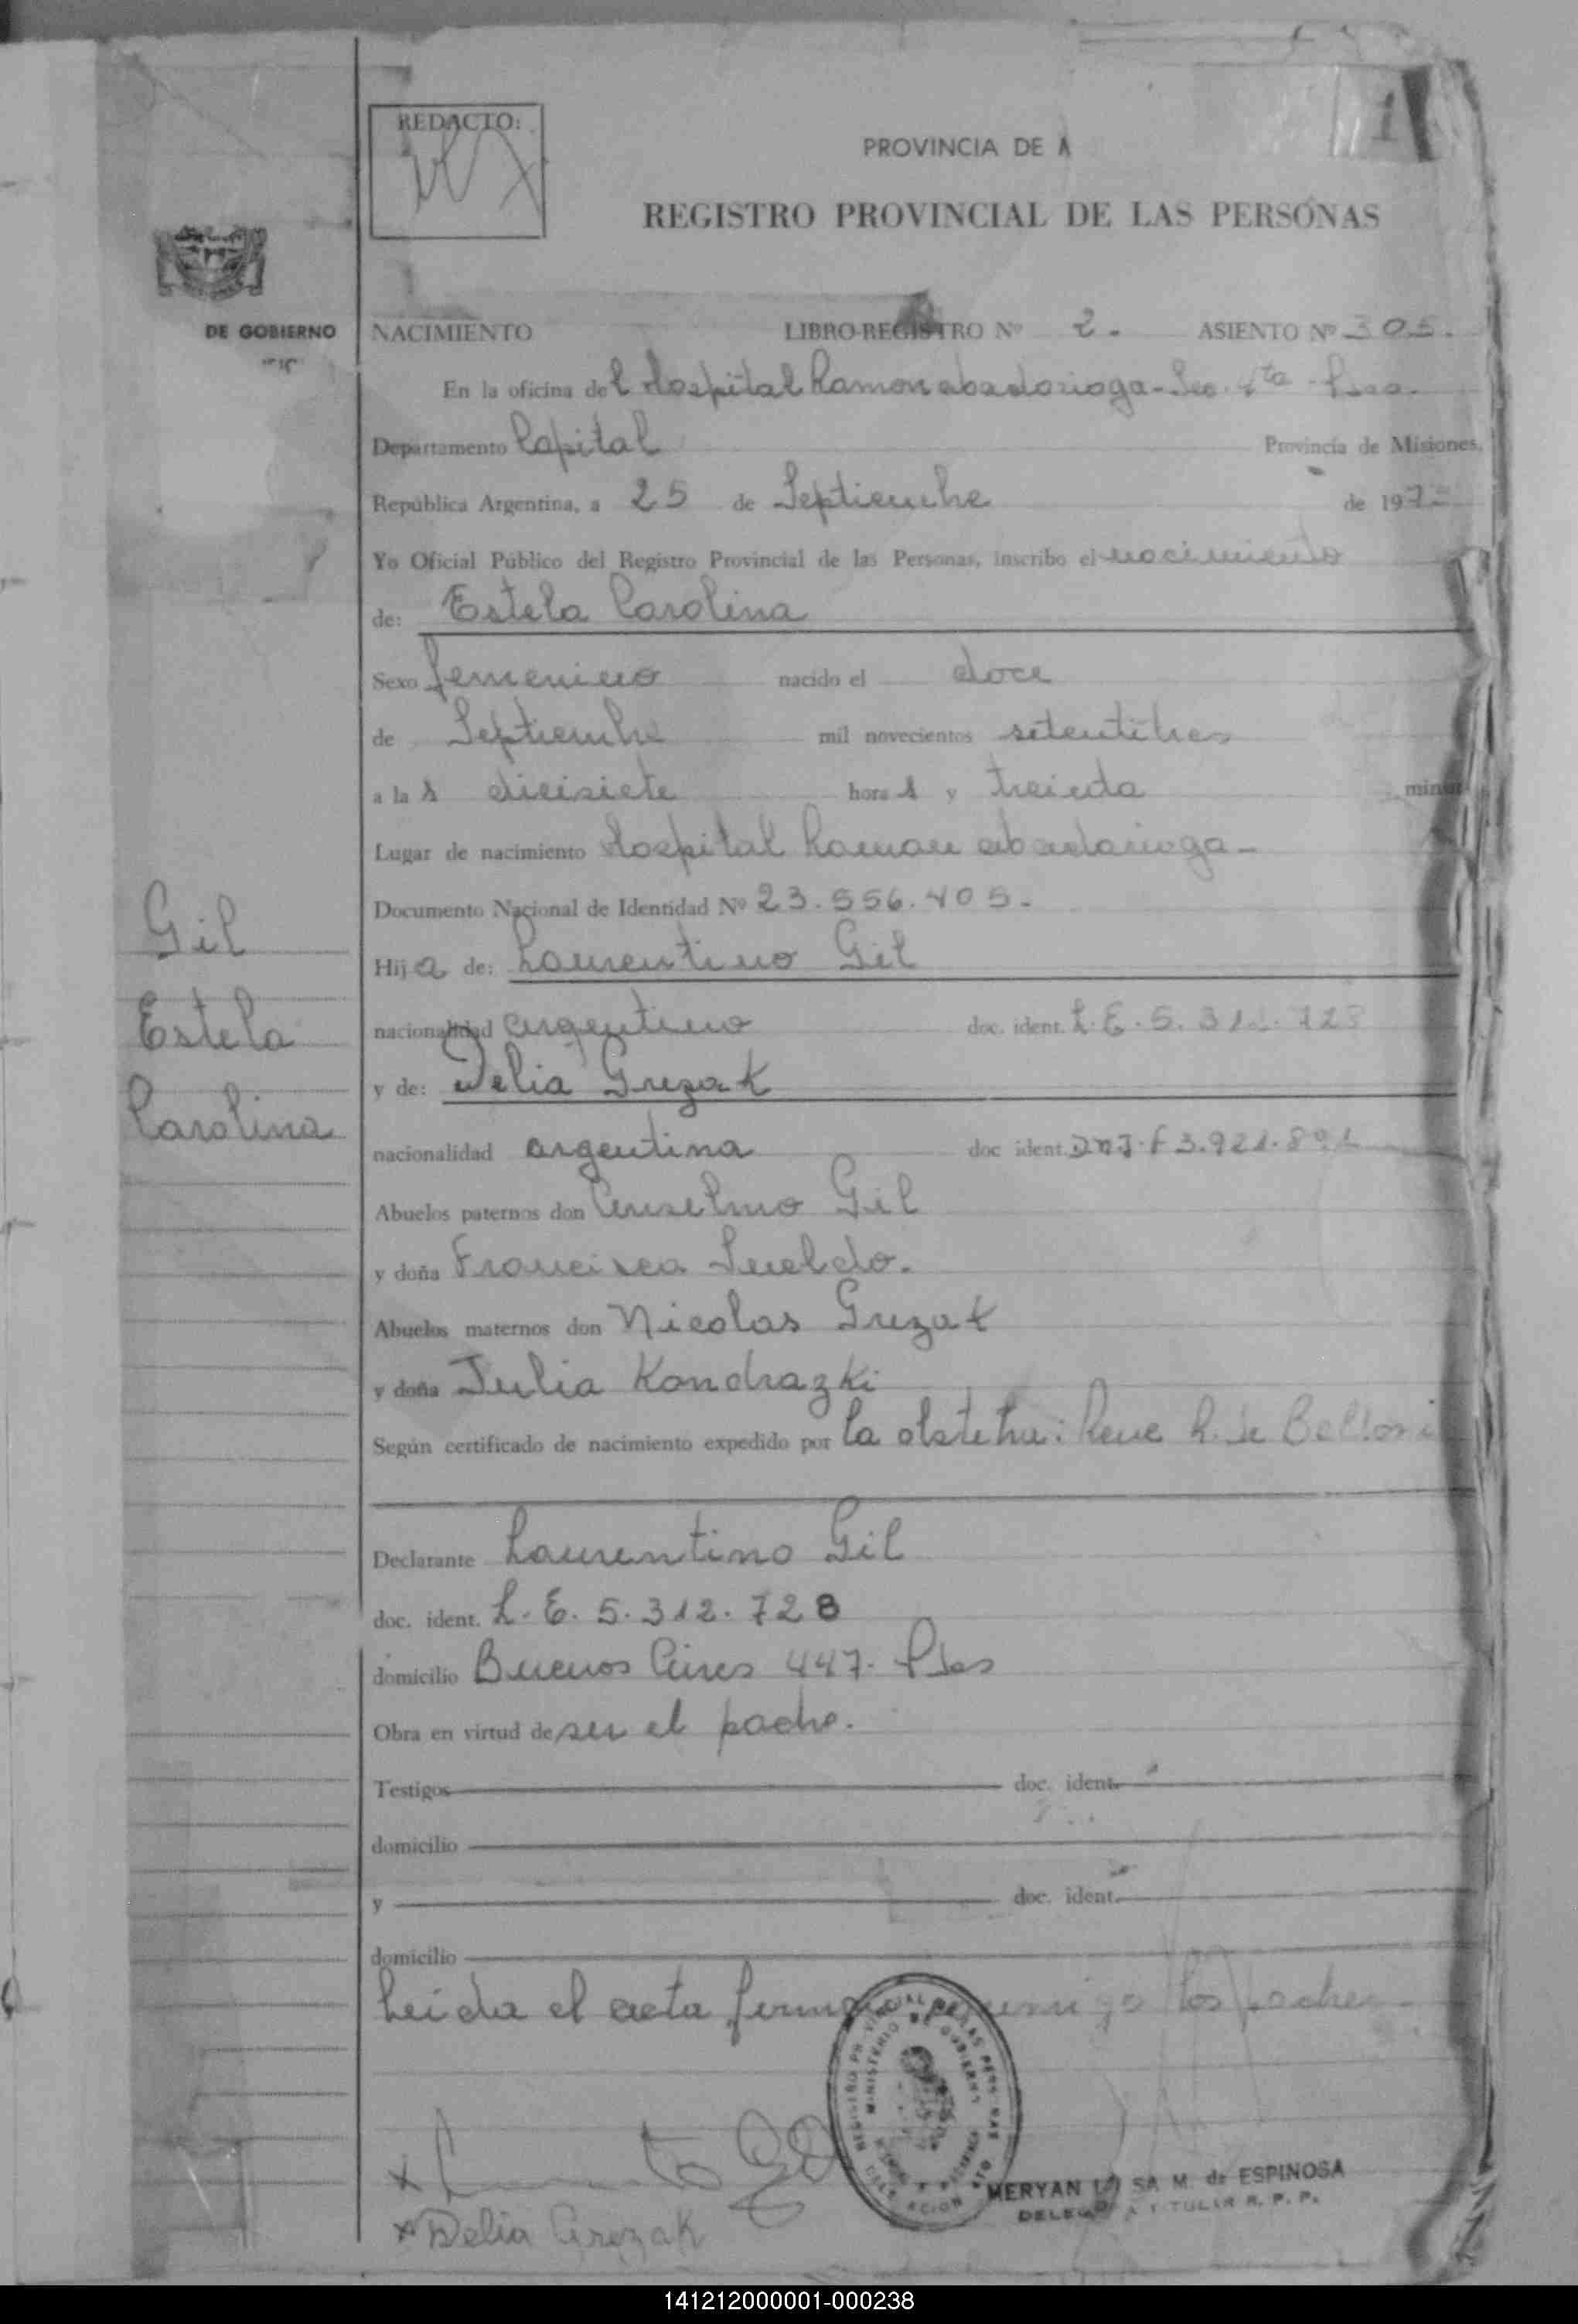 1
REDACTO:
PROVINCIA DE
REGISTRO PROVINCIAL DE LAS PERSONAS
DE GOBIERNO
NACIMIENTO LIBRO-REGISTRO Nº 2. ASIENTO Nº 305.
En la oficina del Hospital Ramon abadarioga - Sec. 4ta
Departamento Capital Provincia de Misiones,
República Argentina, a 25 de Septiembre de 197
Yo Oficial Público del Registro Provincial de las Personas, inscribo el nacimiento
de: Estela Carolina
Sexo femenino nacido el doce
de Septiembre mil novecientos setentitres
a la s diecisiete hora s y treinta minut
Lugar de nacimiento Hospital Ramon abadarioga -
Documento Nacional de Identidad Nº 23.556.405.
Hij a de: Laurentino Gil
nacionalidad argentino doc. ident. L.E. 5.312.728
y de: Delia Grezak
nacionalidad argentina doc ident. DNI. F 3.921.801
Abuelos paternos don Anselmo Gil
y doña Francisca Sueldo.
Abuelos maternos don Nicolas Grezak
y doña Julia Kondrazki
Según certificado de nacimiento expedido por la obstetra: Rene R. de Belloni
Gil
Estela
Carolina
Declarante Laurentino Gil
doc. ident. L.E. 5.312.728
domicilio Buenos Aires 447. Pdas
Obra en virtud de ser el padre.
Testigos doc. ident.
domicilio
y doc. ident.
domicilio
Leida el acta firman conmigo los padres
MINISTERIO DE GOBIERNO
x Delia Grezak
MERYAN SA M. de ESPINOSA
TITULAR R. P. P.
141212000001-000238